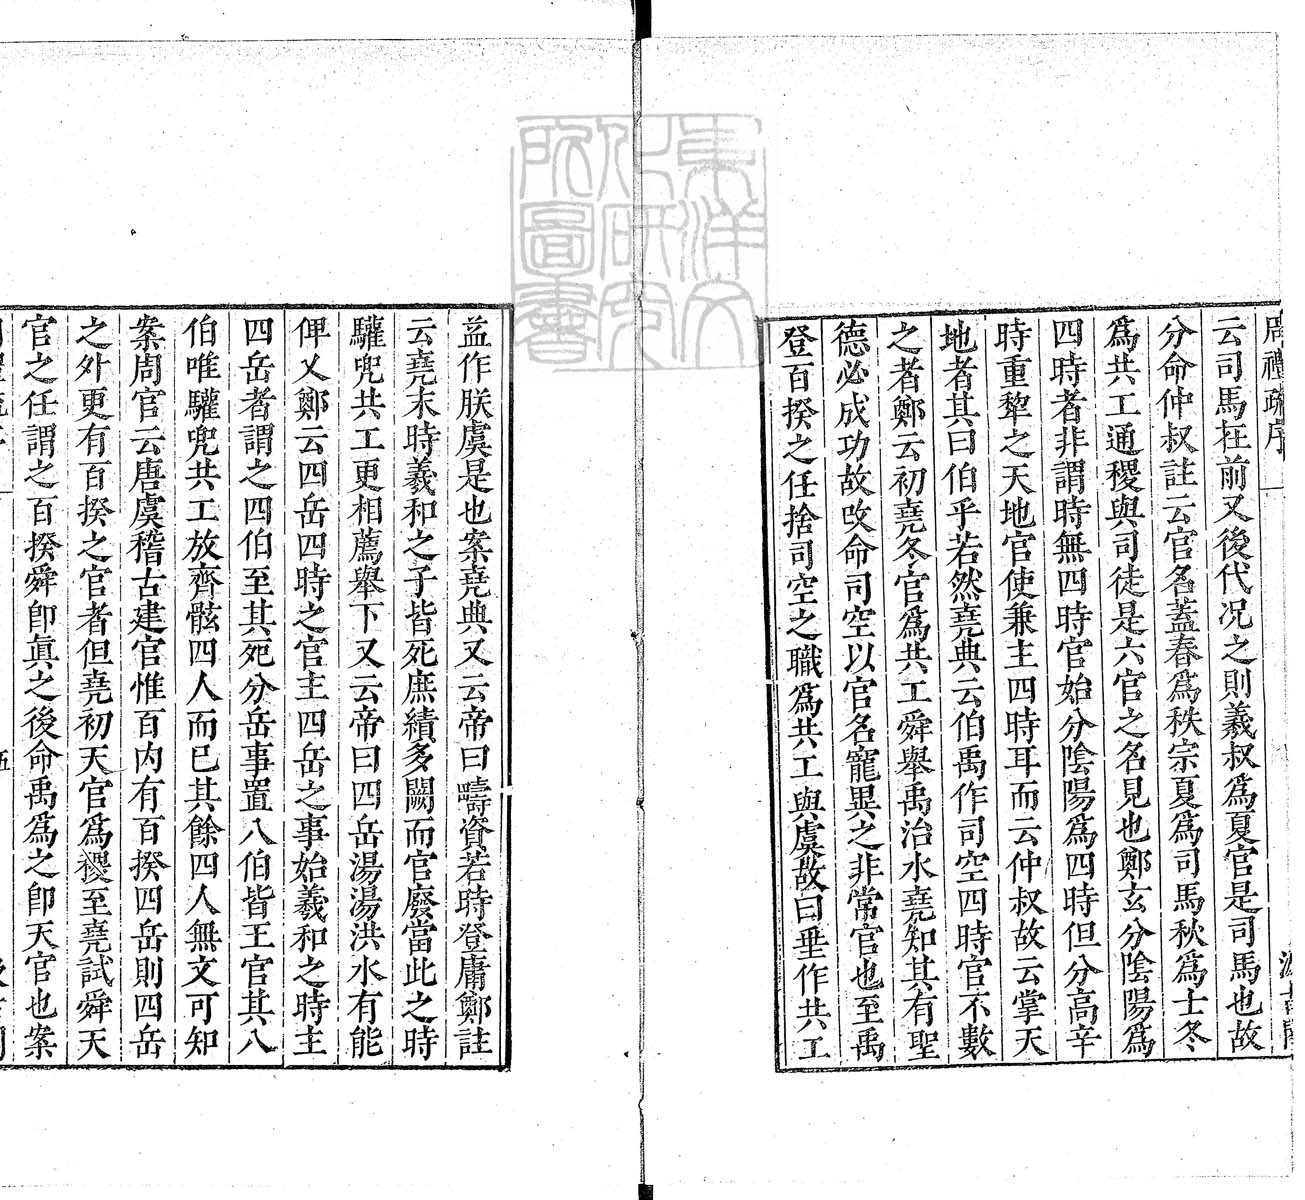 周禮疏序
云司馬在前又後代况之則羲叔爲夏官是司馬也故
分命仲叔註云官名蓋春爲秩宗夏爲司馬秋爲士冬
爲共工通稷與司徒是六官之名見也鄭玄分陰陽爲
四時者非謂時無四時官始分陰陽爲四時但分高辛
時重犂之天地官使兼主四時耳而云仲叔故云掌天
地者其曰伯乎若然堯典云伯禹作司空四時官不數
之者鄭云初堯冬官爲共工舜舉禹治水堯知其有聖
德必成功故改命司空以官名寵異之非常官也至禹
登百揆之任捨司空之職爲共工與虞故曰垂作共工
益作朕虞是也案堯典又云帝曰疇資若時登庸鄭註
云堯末時羲和之子皆死庶績多闕而官廢當此之時
驩兜共工更相薦舉下又云帝曰四岳湯湯洪水有能
俾乂鄭云四岳四時之官主四岳之事始羲和之時主
四岳者謂之四伯至其死分岳事置八伯皆王官其八
伯唯驩兜共工放齊骸四人而已其餘四人無文可知
案周官云唐虞稽古建官惟百内有百揆四岳則四岳
之外更有百揆之官者但堯初天官爲稷至堯試舜天
官之任謂之百揆舜卽眞之後命禹爲之卽天官也案
東洋文
化研究
所圖書